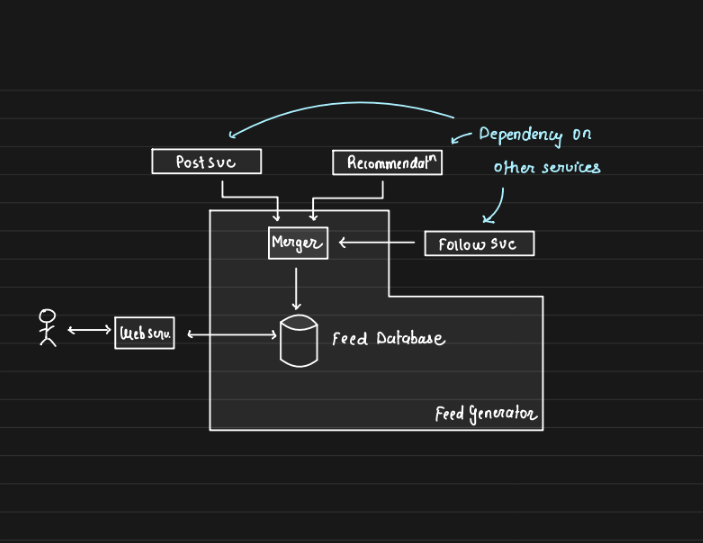 Dependency on
other services
Post svc
Recommendatⁿ
Merger
Follow svc
Web serv.
Feed Database
Feed Generator